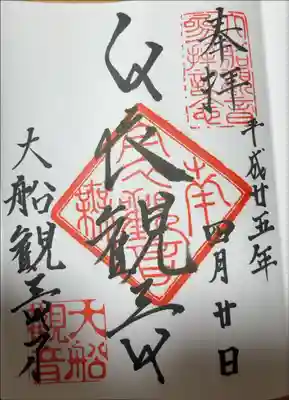 奉拝
平成廿五年
四月廿日
白衣観音
大船観音寺
大船
観音